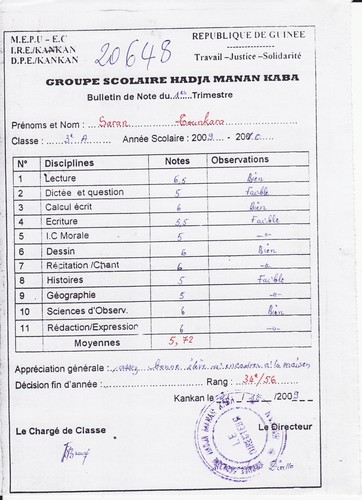 M.E.P.U - E.C
REPUBLIQUE DE GUINEE
I.R.E./KANKAN
D.P.E./KANKAN
20648
Travail –Justice –Solidarité
GROUPE SCOLAIRE HADJA MANAN KABA
Bulletin de Note du 1er Trimestre
Prénoms et Nom : Saran Tounkara
Classe : 3e A Année Scolaire : 2009 - 2010
N° Disciplines Notes Observations
1 Lecture 6,5 Bien
2 Dictée et question 5 Faible
3 Calcul écrit 6 Bien
4 Ecriture 5,5 Faible
5 I.C Morale 5 -"-
6 Dessin 6 Bien
7 Récitation /Chant 6 -"-
8 Histoires 5 Faible
9 Géographie 5 -"-
10 Sciences d'Observ. 6 Bien
11 Rédaction/Expression 6 -"-
Moyennes 5,72
Appréciation générale : à la maison
Décision fin d'année : Rang : 34e/56
Kankan le 2009
Le Chargé de Classe
Le Directeur
LE DIRECTEUR
Diallo